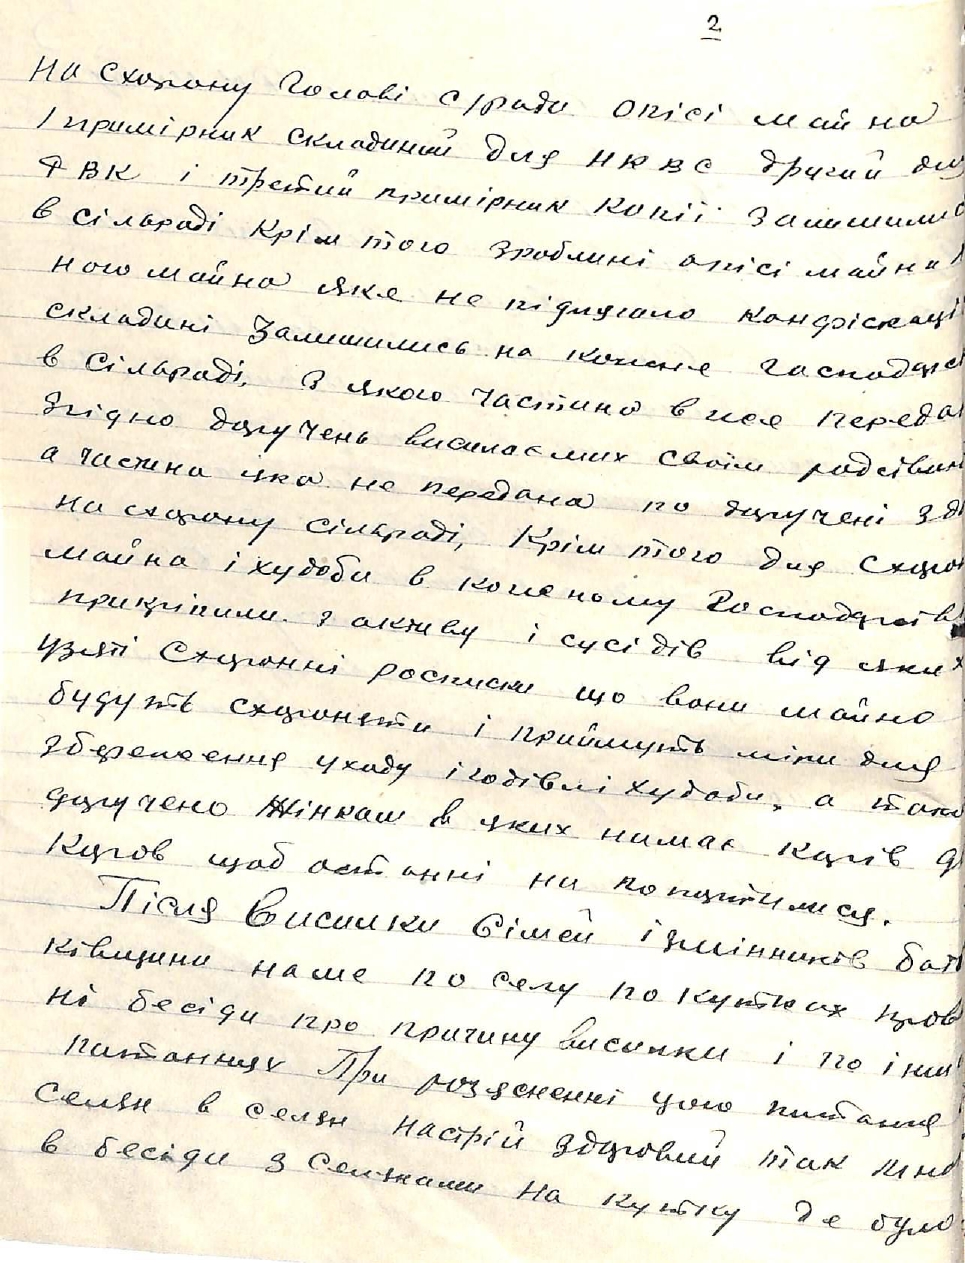 2
На схорону Голові с/ради опісі майна
1 примірник складиний для НКВС другий для
РВК і третий примірник копії залишили
в сільраді Крім того зроблині опісі майна
ного майна яке не підлягало конфіскації
складині залишились на кожне господарс
в сільраді, з якого частина вже переда
згідно доручень висилаємих своїм родствин
а частина яка не передана по доручені зда
на схорону сільраді, Крім того для схорон
майна і худоби в кожному господарств
прикріпили з активу і сусідів від яких
узяті Схоронні росписки що вони майно
будуть схороняти і приймуть міри для
збереження уходу і годівлі худоби, а тако
доручено Жінкам в яких нимає корів д
Коров щоб останні ни попортилися.
Після Висилки Сімей ізмінників бать
ківщини наме по селу по кутках пров
ні бесіди про причину висилки і по інш
питанням При розясненні цого питання
Селян в селян настрій здоровий так мно
в бесіди з селянами на кутку де було